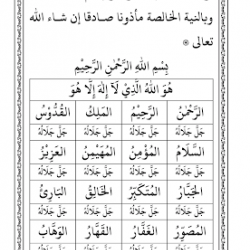 وبالنية الخالصة مأذونا صادقا إن شاء الله
تعالى
بِسْمِ اللهِ الرَّحْمٰنِ الرَّحِيْمِ
هُوَ اللهُ الَّذِيْ لَآ إِلٰهَ إِلَّا هُوَ
الرَّحْمٰنُ الرَّحِيْمُ المَلِكُ القُدُّوْسُ
جَلَّ جَلَالُهُ جَلَّ جَلَالُهُ جَلَّ جَلَالُهُ جَلَّ جَلَالُهُ
السَّلَامُ المُؤْمِنُ المُهَيْمِنُ العَزِيْزُ
جَلَّ جَلَالُهُ جَلَّ جَلَالُهُ جَلَّ جَلَالُهُ جَلَّ جَلَالُهُ
الجَبَّارُ المُتَكَبِّرُ الخَالِقُ البَارِئُ
جَلَّ جَلَالُهُ جَلَّ جَلَالُهُ جَلَّ جَلَالُهُ جَلَّ جَلَالُهُ
المُصَوِّرُ الغَفَّارُ القَهَّارُ الوَهَّابُ